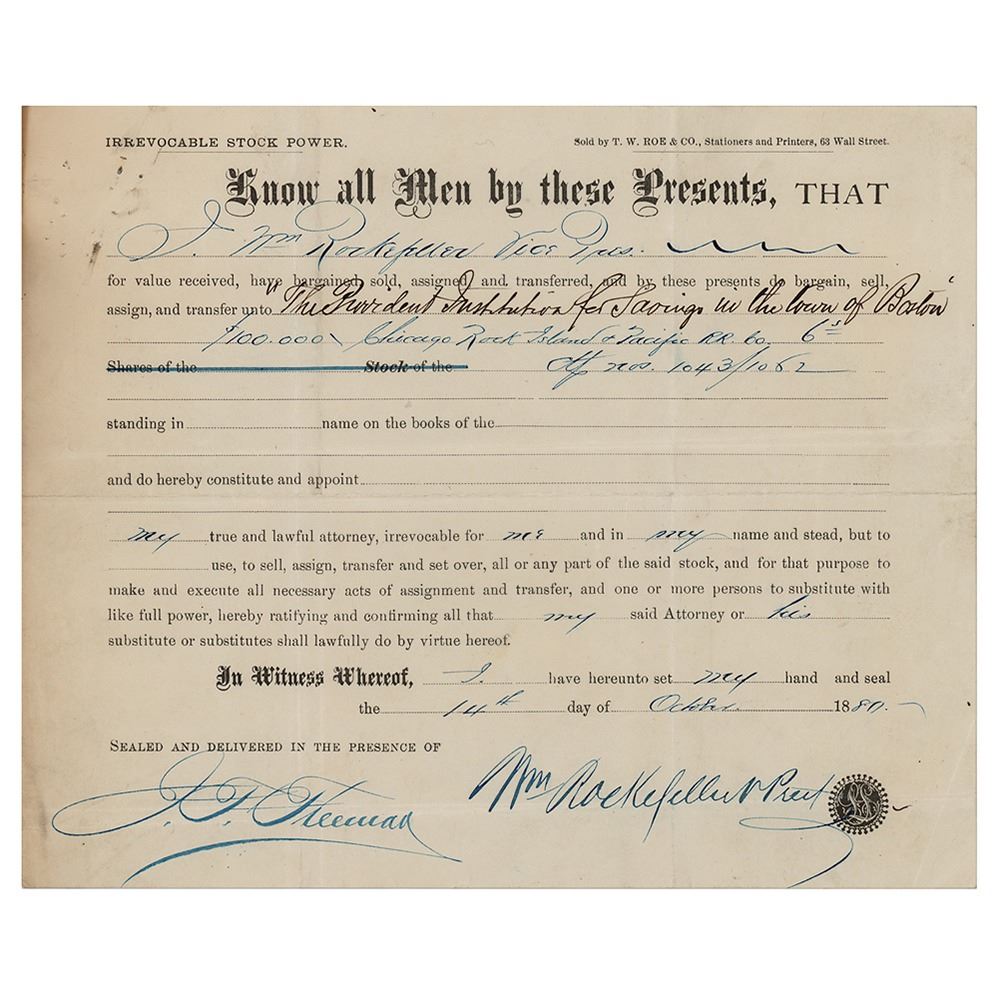 IRREVOCABLE STOCK POWER. Sold by T. W. ROE & CO., Stationers and Printers, 63 Wall Street.
Know all Men by these Presents, THAT
I. Wm Rockefeller Vice Pres.
for value received, have bargained, sold, assigned and transferred, and by these presents do bargain, sell,
assign, and transfer unto "The Provident Institution for Savings in the town of Boston"
$100.000 Chicago Rock Island & Pacific RR. Co. 6s
Shares of the Stock of the Ctf nos. 1043/1062
standing in name on the books of the
and do hereby constitute and appoint
my true and lawful attorney, irrevocable for me and in my name and stead, but to
use, to sell, assign, transfer and set over, all or any part of the said stock, and for that purpose to
make and execute all necessary acts of assignment and transfer, and one or more persons to substitute with
like full power, hereby ratifying and confirming all that my said Attorney or his
substitute or substitutes shall lawfully do by virtue hereof.
In Witness Whereof, I have hereunto set my hand and seal
the 14th day of October 1880.
SEALED AND DELIVERED IN THE PRESENCE OF
Wm Rockefeller V Prest
Freeman